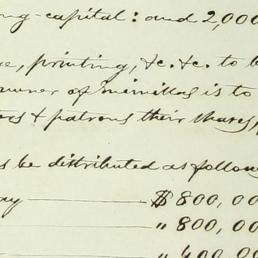 ng-capital: and 2,000
e, printing, &c. &c. to b
anner of is to
ers & patrons their shares,
s be distributed as follow
ay — $800,00
" 800,00
" 400,00